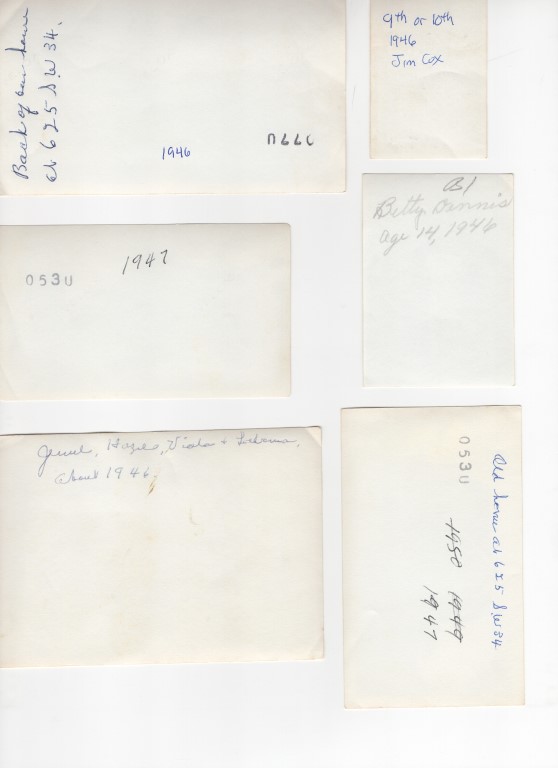 Back of our home
at 625 S.W 34.
1946
0770
9th or 10th
1946
Jim Cox
B1
Betty Dennis
age 14, 1946
1947
053U
Hazel, Viola +
about 1946
053U
Old home at 625 S.W 34
1950 1949
1947